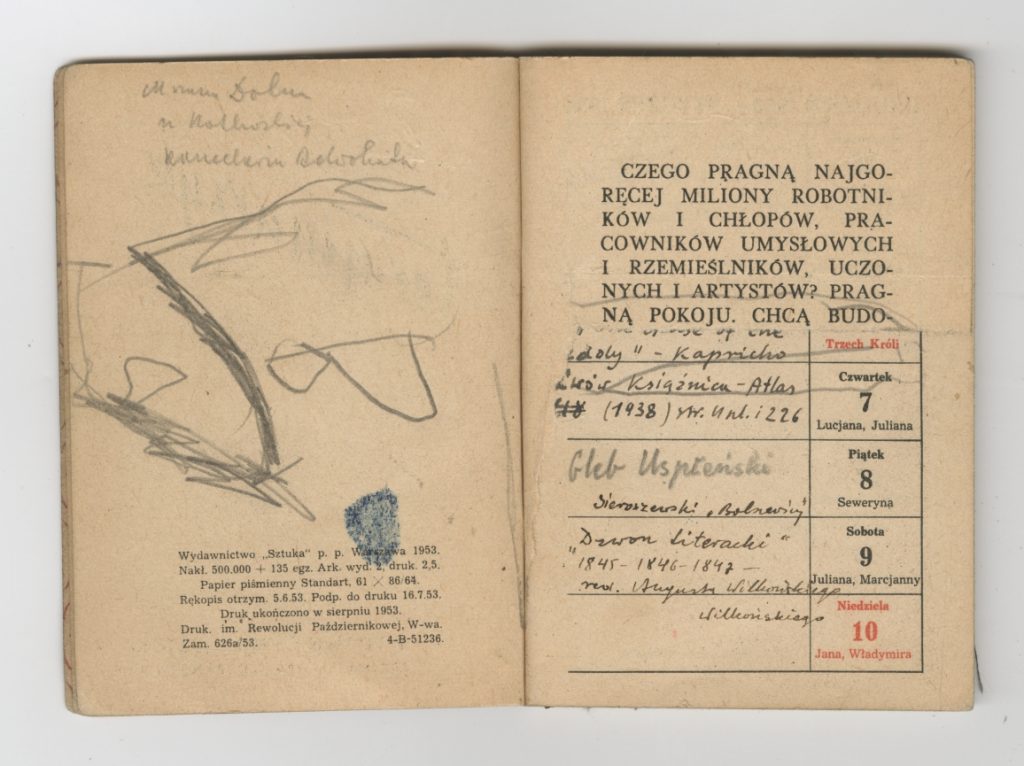 Wydawnictwo „Sztuka" p. p. Warszawa 1953.
Nakł. 500.000 + 135 egz. Ark. wyd. 2, druk. 2,5.
Papier piśmienny Standart, 61 × 86/64.
Rękopis otrzym. 5.6.53. Podp. do druku 16.7.53.
Druk ukończono w sierpniu 1953.
Druk. im. Rewolucji Październikowej, W-wa.
Zam. 626a/53. 4-B-51236.
CZEGO PRAGNĄ NAJGO-
RĘCEJ MILIONY ROBOTNI-
KÓW I CHŁOPÓW, PRA-
COWNIKÓW UMYSŁOWYCH
I RZEMIEŚLNIKÓW, UCZO-
NYCH I ARTYSTÓW? PRAG-
NĄ POKOJU. CHCĄ BUDO-
of the
Trzech Króli
" – Kapricho
Książnica – Atlas
(1938) str.
226
Czwartek
7
Lucjana, Juliana
Gleb
Piątek
8
Seweryna
Sieroszewski
„Dzwon Literacki"
1845 – 1846 – 1847 –
Augusta Wilkońskiego
Wilkońskiego
Sobota
9
Juliana, Marcjanny
Niedziela
10
Jana, Władymira